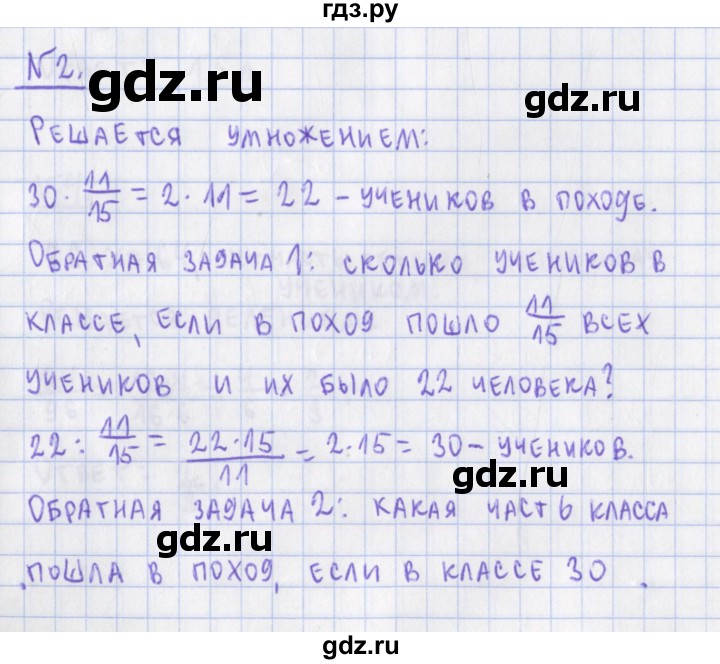 гдз.ру
№2.
gdz.ru
gdz.ru
Решается умножением:
30 · 11/15 = 2 · 11 = 22 – учеников в походе.
Обратная задача 1: сколько учеников в
классе, если в поход пошло 11/15 всех
учеников и их было 22 человека?
22 : 11/15 = 22·15/11 = 2·15 = 30 – учеников.
gdz.ru
Обратная задача 2: какая часть класса
gdz.ru
пошла в поход, если в классе 30
gdz.ru